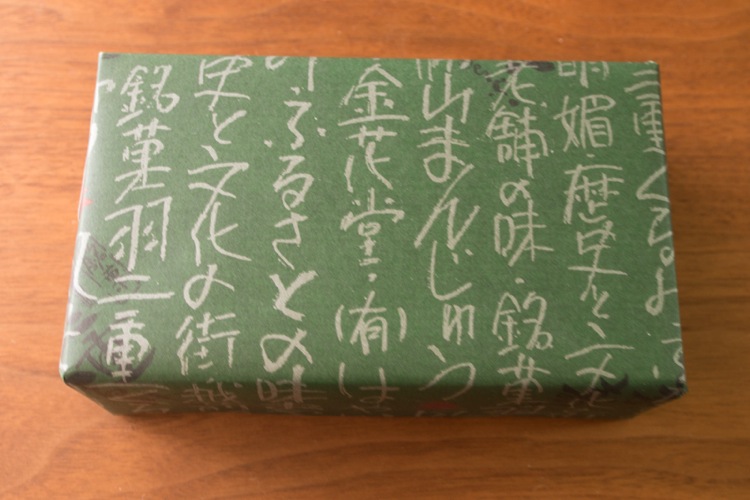 二重くるみ
明媚・歴史と文化
老舗の味・銘菓
山まんじゅう
・金花堂・(有)は
ふるさとの味
史と文化の街
銘菓羽二重